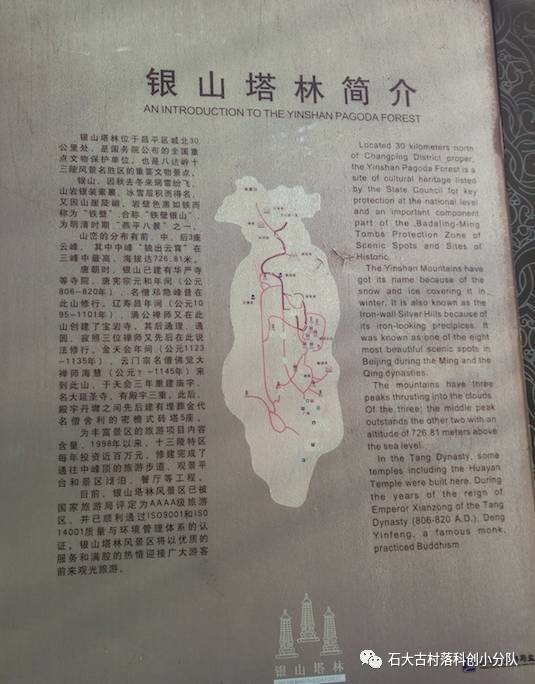 银山塔林简介
AN INTRODUCTION TO THE YINSHAN PAGODA FOREST
银山塔林位于昌平区城北30
公里处，是国务院公布的全国重
点文物保护单位。也是八达岭十
三陵风景名胜区的重要文物景点。
银山，因秋去冬来瑞雪纷飞，
山岩银装素裹，冰雪层积而得名。
又因山崖陵峭，岩壁色黑如铁而
称为“铁壁”，合称“铁壁银山”，
为明清时期“燕平八景”之一。
山峦的分布有前、中、后3座
云峰，其中中峰“独出云霄”在
三峰中最高，海拔达726.81米。
唐朝时，银山已建有华严寺
等寺院，唐宪宗元和年间（公元
806-820年），名僧邓隐峰曾在
此山修行。辽寿昌年间（公元10
95-1101年），满公禅师又在此
山创建了宝岩寺，其后通理、通
圆、寂照三位禅师又先后在此说
法修行。金天会年间（公元1123
-1135年），云门宗名僧佛觉大
禅师海慧（公元？-1145年）来
到此山，于天会三年重建庙宇，
名大延圣寺，有殿宇三重。此后，
殿宇丹墀之间先后建有埋葬金代
名僧舍利的密檐式砖塔5座。
为丰富景区的旅游项目内容
含量，1998年以来，十三陵特区
每年投资近百万元，修建完成了
通往中峰顶的旅游步道、观景平
台和景区泊、餐厅等工程。
目前，银山塔林风景区已被
国家旅游局评定为AAAA级旅游
区，并已顺利通过ISO9001和ISO
14001质量与环境管理体系的认
证。银山塔林风景区将以优质的
服务和满腔的热情迎接广大游客
前来观光旅游。
Located 30 kilometers north
of Changping District proper,
the Yinshan Pagoda Forest is a
site of cultural heritage listed
by the State Council for key
protection at the national level
and an important component
part of the „Badaling-Ming
Tombs Protection Zone of
Scenic Spots and Sites of
Historic.
The Yinshan Mountains have
got its name because of the
snow and ice covering it in
winter. It is also known as the
Iron-wall Silver Hills because of
its iron-looking precipices. It
was known as one of the eight
most beautiful scenic spots in
Beijing during the Ming and the
Qing dynasties.
The mountains have three
peaks thrusting into the clouds.
Of the three; the middle peak
outstands the other two with an
altitude of 726.81 meters above
the sea level.
In the Tang Dynasty, some
temples including the Huayan
Temple were built here. During
the years of the reign of
Emperor Xianzong of the Tang
Dynasty (806-820 A.D.), Deng
Yinfeng, a famous monk,
practiced Buddhism
银山塔林
石大古村落科创小分队